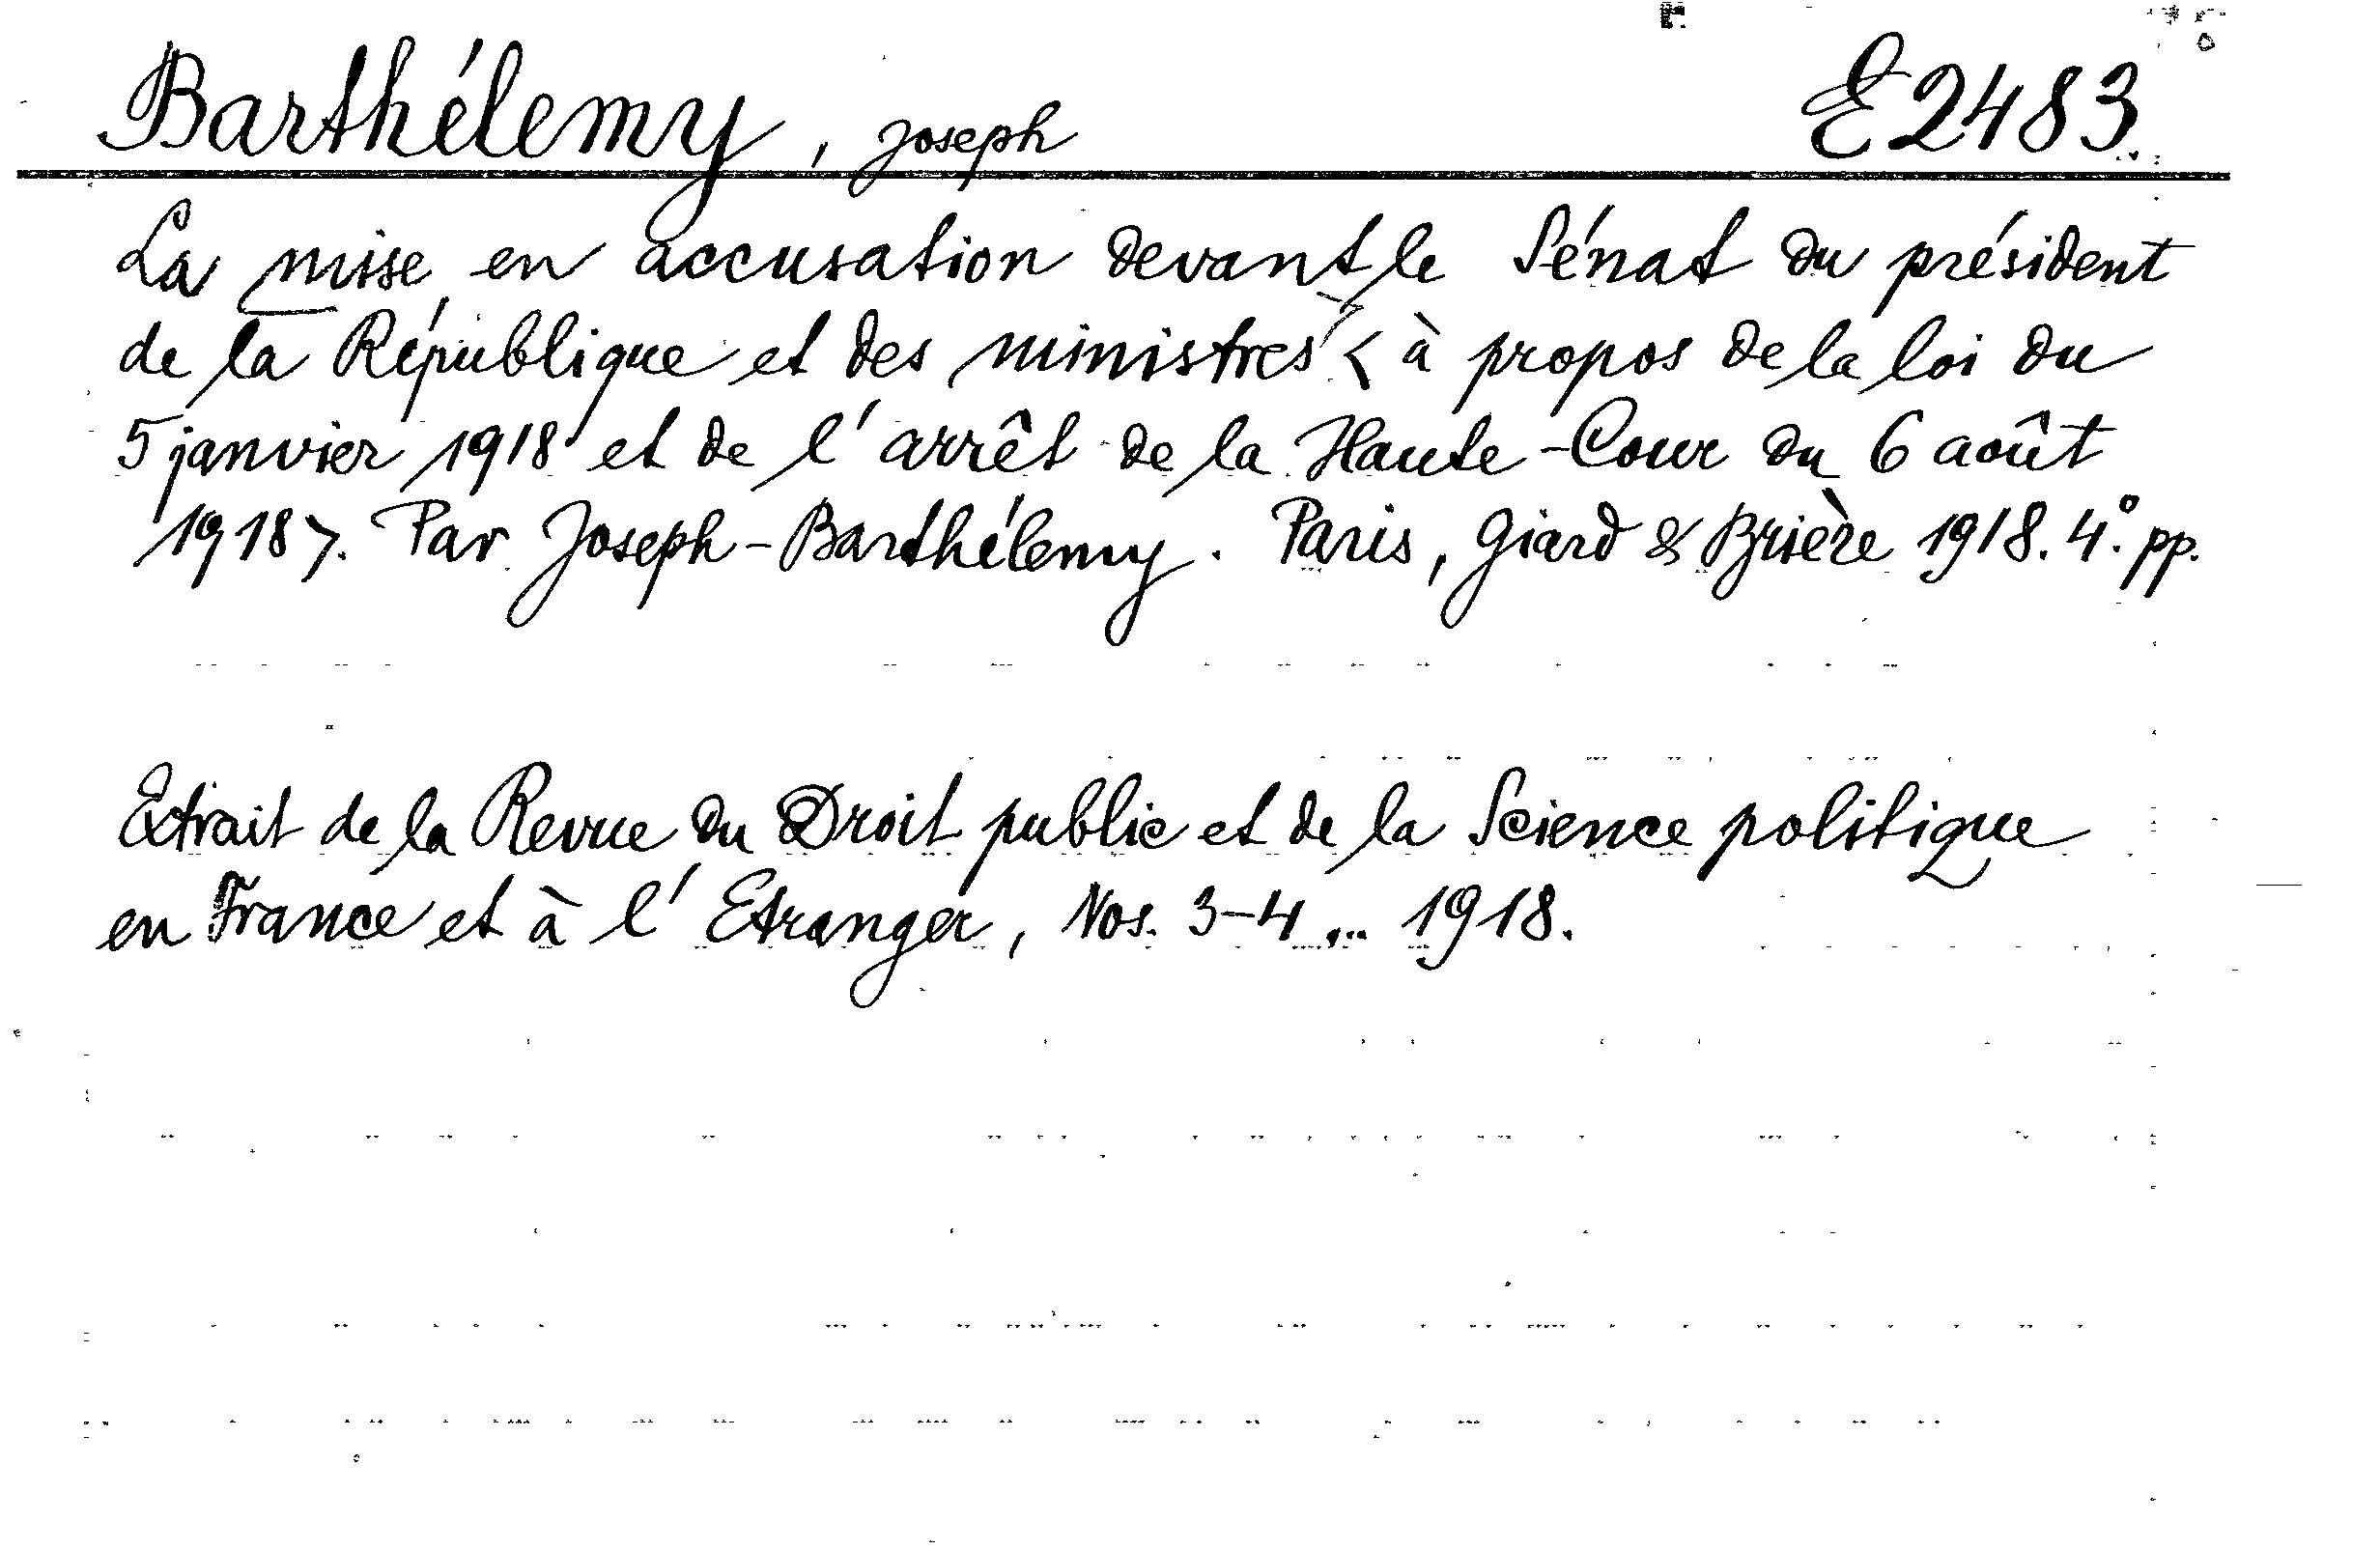 Barthélemy, Joseph E2483
La mise en accusation devant le Sénat du président
de la République et des ministres < à propos de la loi du
5 janvier 1918 et de l'arrêt de la Haute-Cour du 6 août
1918>. Par Joseph-Barthélemy. Paris, Giard & Brière 1918. 4.° pp.
Extrait de la Revue du Droit public et de la Science politique
en France et à l'Etranger, Nos. 3-4 ... 1918.